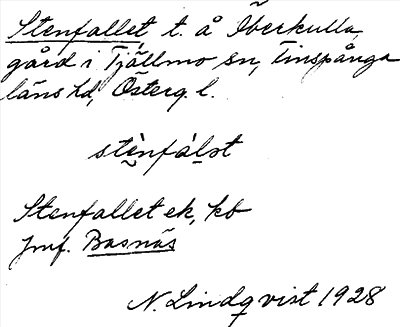 Stenfallet t. å Överkulla,
gård i Tjällmo sn, Finspånga
läns hd, Österg. l.
stènfálət
Stenfallet ek, kb
Jmf. Basnäs
N. Lindqvist 1928